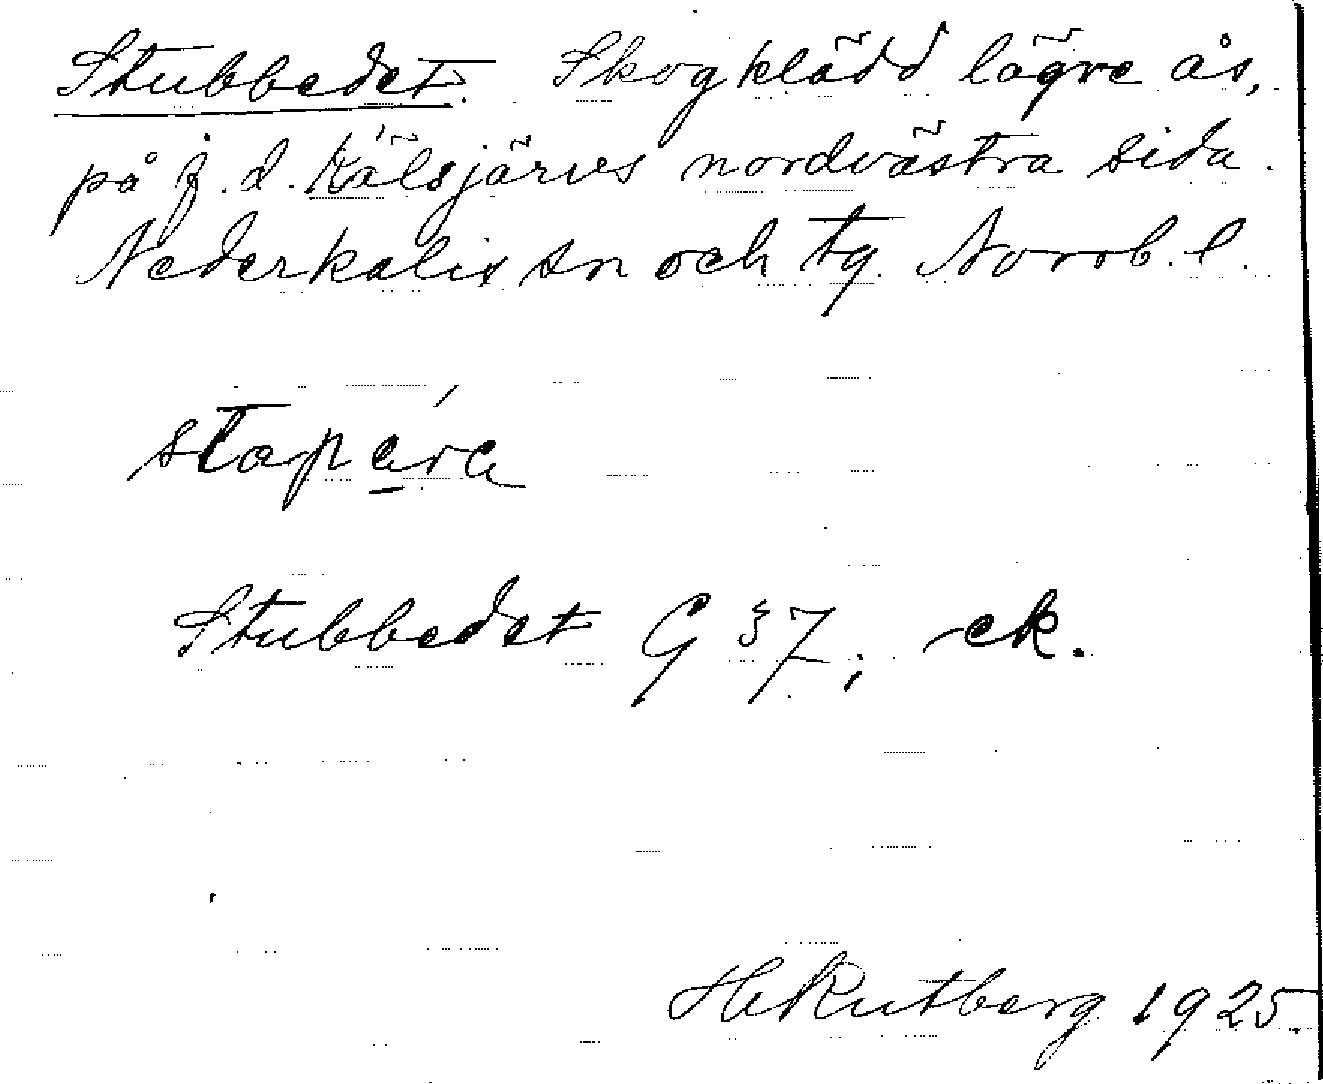 Stubbedet. Skogklädd lägre ås,
på f. d. Kälsjärvs nordvästra sida.
Nederkalix sn och tg. Norrb. l.
stapara
Stubbedet G 37; ek.
HKutberg 1925.